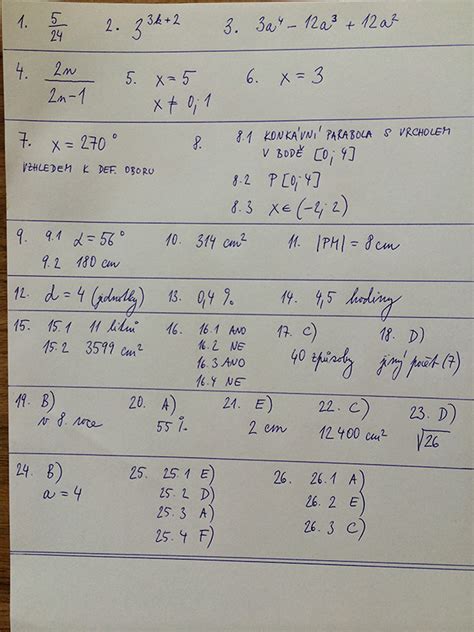 1. 5/24 2. 3^(3k+2) 3. 3a⁴ − 12a³ + 12a²
4. 2n/(2n−1) 5. x = 5 6. x = 3
x ≠ 0; 1
7. x = 270° 8. 8.1 KONKÁVNÍ PARABOLA S VRCHOLEM
VZHLEDEM K DEF. OBORU V BODĚ [0; 4]
8.2 P[0; 4]
8.3 x ∈ (−2; 2)
9. 9.1 α = 56° 10. 314 cm² 11. |PM| = 8 cm
9.2 180 cm
12. d = 4 (jednotky) 13. 0,4 % 14. 4,5 hodiny
15. 15.1 11 litrů 16. 16.1 ANO 17. C) 18. D)
15.2 3599 cm² 16.2 NE 40 způsoby jiný počet (7)
16.3 ANO
16.4 NE
19. B) 20. A) 21. E) 22. C) 23. D)
v 8. roce 55 % 2 cm 12 400 cm² √26
24. B) 25. 25.1 E) 26. 26.1 A)
a = 4 25.2 D) 26.2 E)
25.3 A) 26.3 C)
25.4 F)